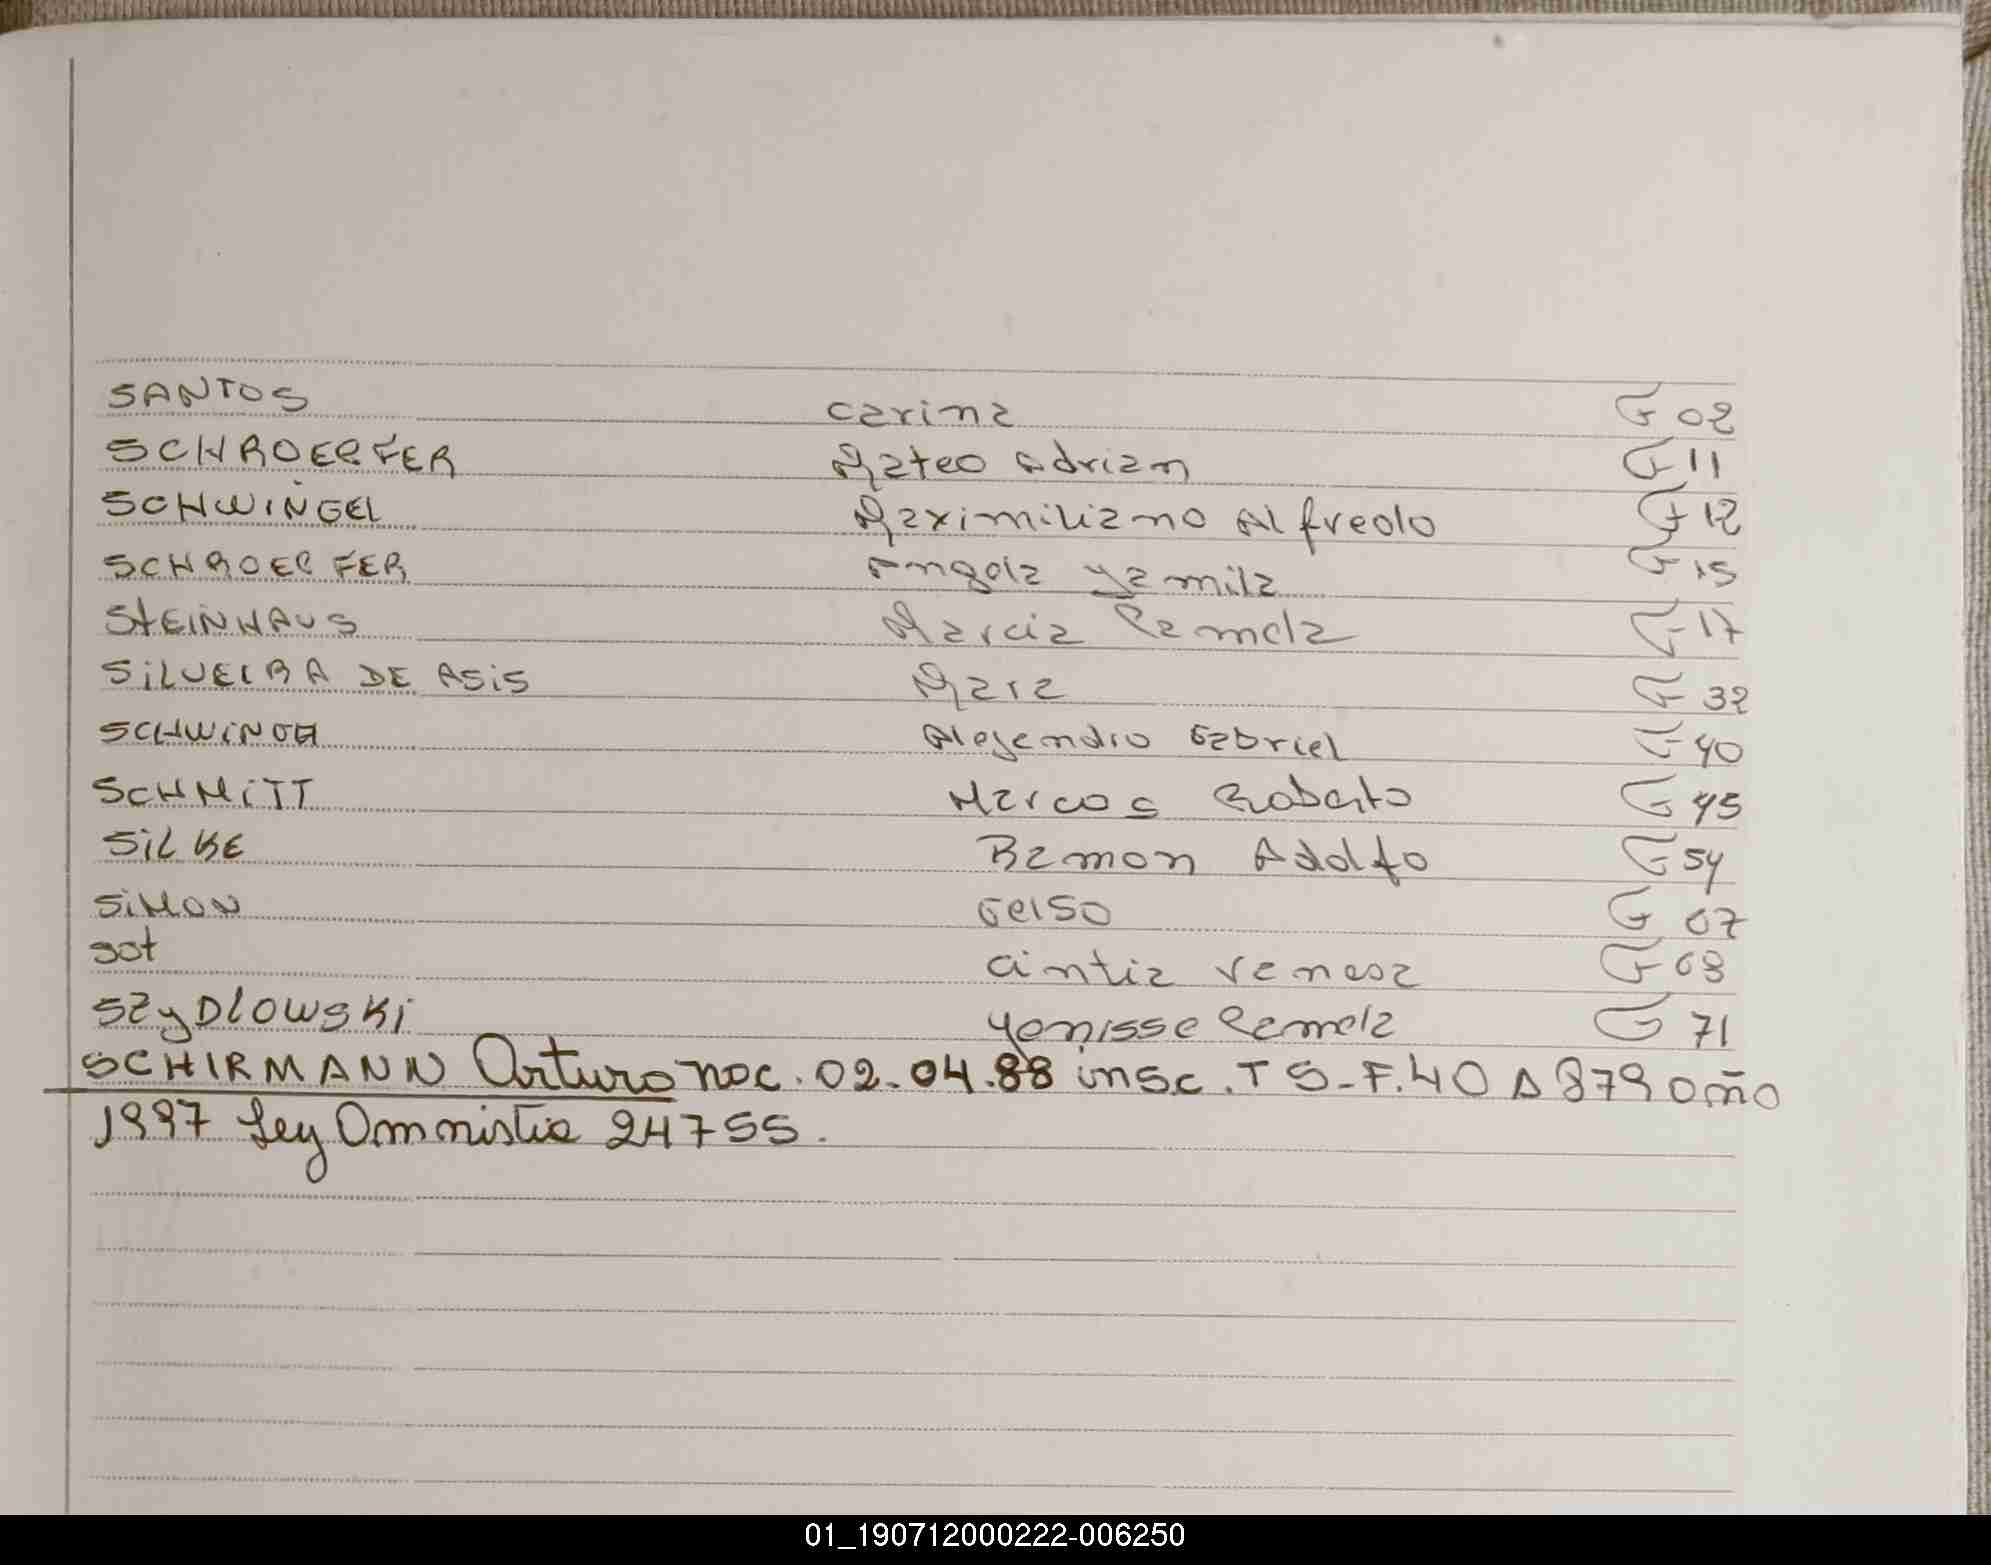 SANTOS carina F 02
SCHROEPFER Mateo Adrian F 11
SCHWINGEL Maximiliano Alfredo F 12
SCHROEPFER Angela yamila F 15
StEiNHAUS Marcia Pamela F 17
SiLVEIRA DE ASiS Mara F 32
SCHWiNGH Alejandro Gabriel F 40
SCHMiTT Marcos Roberto F 45
SiLKE Ramon Adolfo F 54
SiMON Celso F 07
sot cintia Vanesa F
SZyDLOWSKi yanisse Pamela F 71
SCHIRMANN Arturo nac. 02.04.88 insc. T S-F.40 A 879 año
1997 Ley Amnistia 24755.
01_190712000222-006250